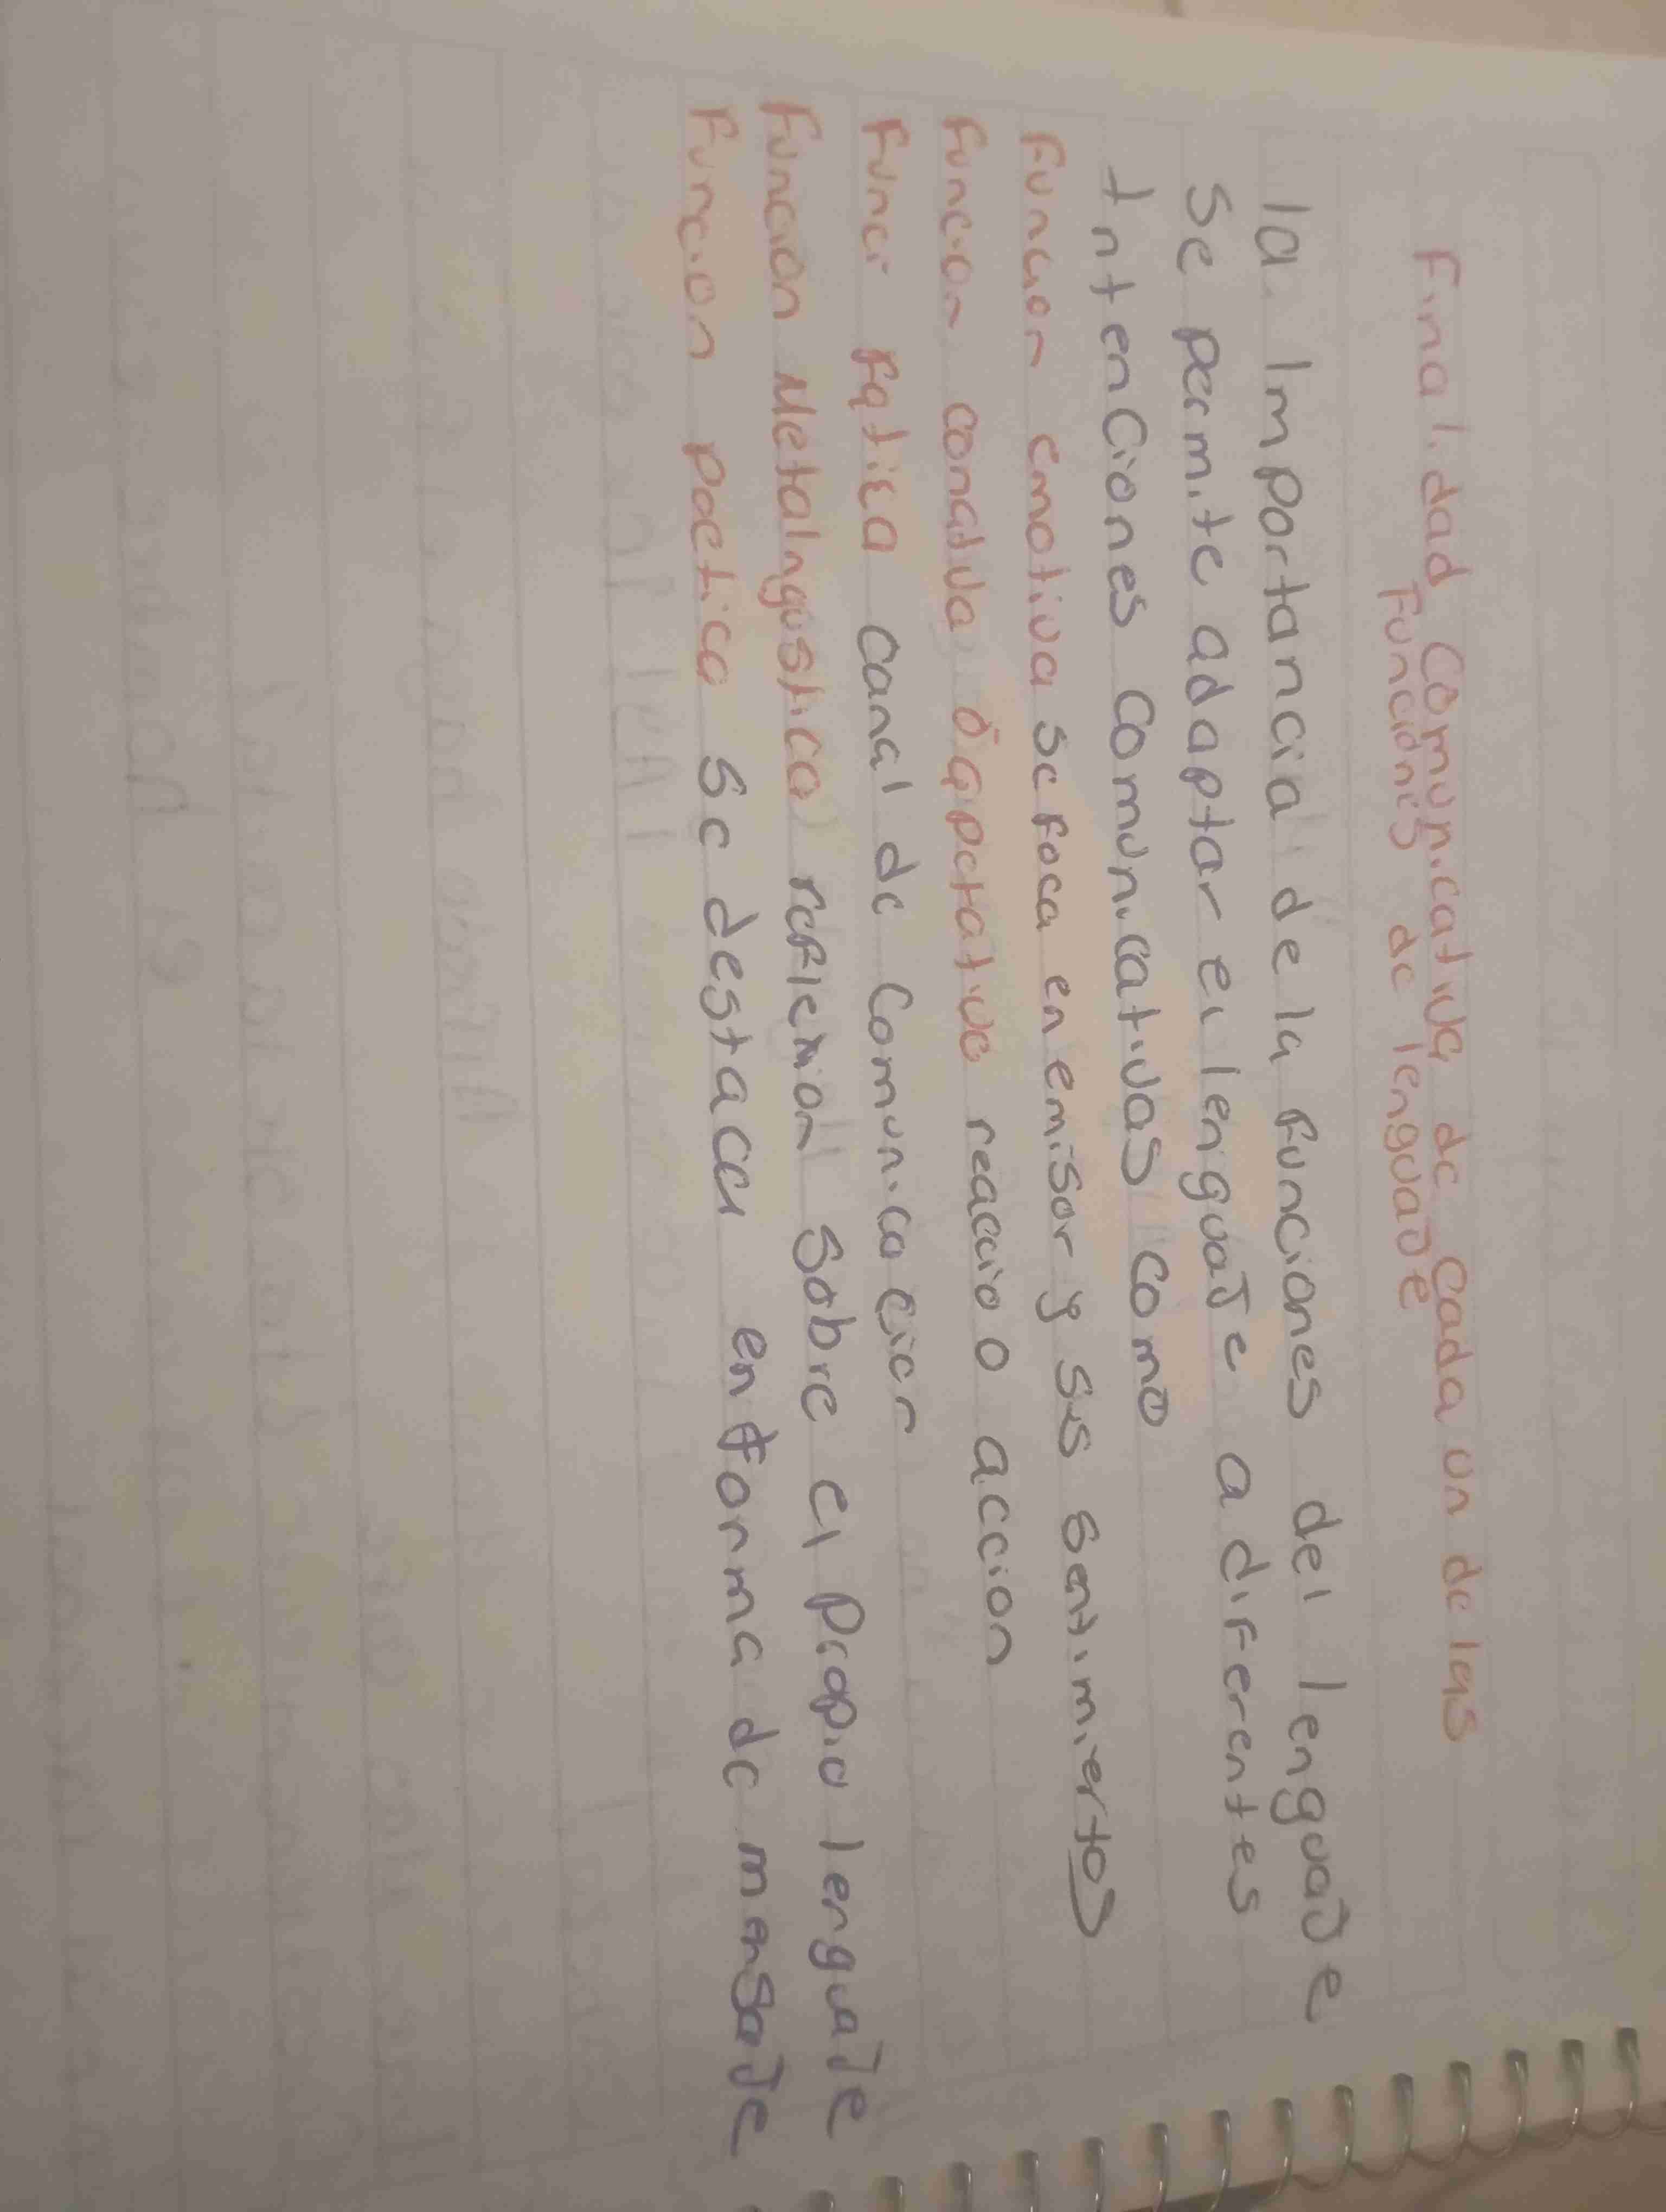 Finalidad Comunicativa de cada un de las
Funciones de lenguaje
la Importancia de la Funciones del lenguaje
Se permite adaptar el lenguaje a diferentes
Intenciones Comunicativas como
Funcion emotiva se Foca en emisor y sus sentimientos
Funcion conativa o apetativo reaccio o accion
Funci Fatica canal de comunicacion
Funcion Metalngustica reflexion sobre el propio lenguaje
Funcion poetica se destaca en forma de mensaje